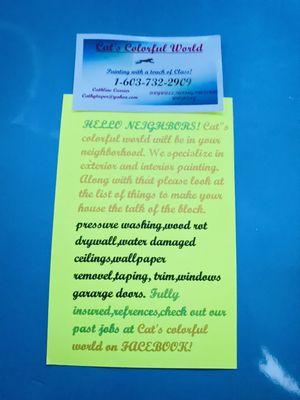 Cat's Colorful World
Painting with a touch of Class!
1-603-732-2909
Cathline Currier
Cathytaper@yahoo.com
HELLO NEIGHBORS! Cat's
colorful world will be in your
neighborhood. We specialize in
exterior and interior painting.
Along with that please look at
the list of things to make your
house the talk of the block.
pressure washing,wood rot
drywall,water damaged
ceilings,wallpaper
removel,taping, trim,windows
gararge doors. Fully
insured,refrences,check out our
past jobs at Cat's colorful
world on FACEBOOK!